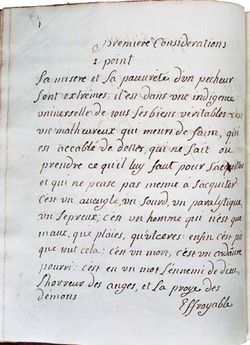 premiere Considerations
1. point
La misere et la pauvreté d'un pecheur
sont extrémes: il est dans une indigence
universelle de tous les biens veritables: c'est
un malheureux qui meurt de faim, qui
est accablé de dettes, qui ne sait ou
prendre ce qu'il luy faut pour s'aquitter
et qui ne pense pas mesme a s'aquiter
c'est un aveugle, un sourd, un paralytique
un lepreux, c'est un homme qui n'est que
maux, que plaies, qu'ulceres: enfin c'est pis
que tout cela: c'est un mort, c'est un cadavre
pourri: c'est en un mot l'ennemi de dieu,
l'horreur des anges, et la proye des
démons
Effroyable